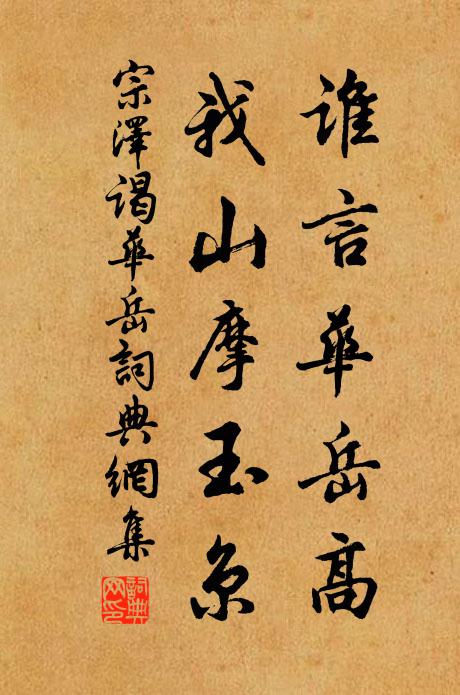 誰言華岳高
我山摩玉京
宗澤謁華岳詞典網集
詞典網印